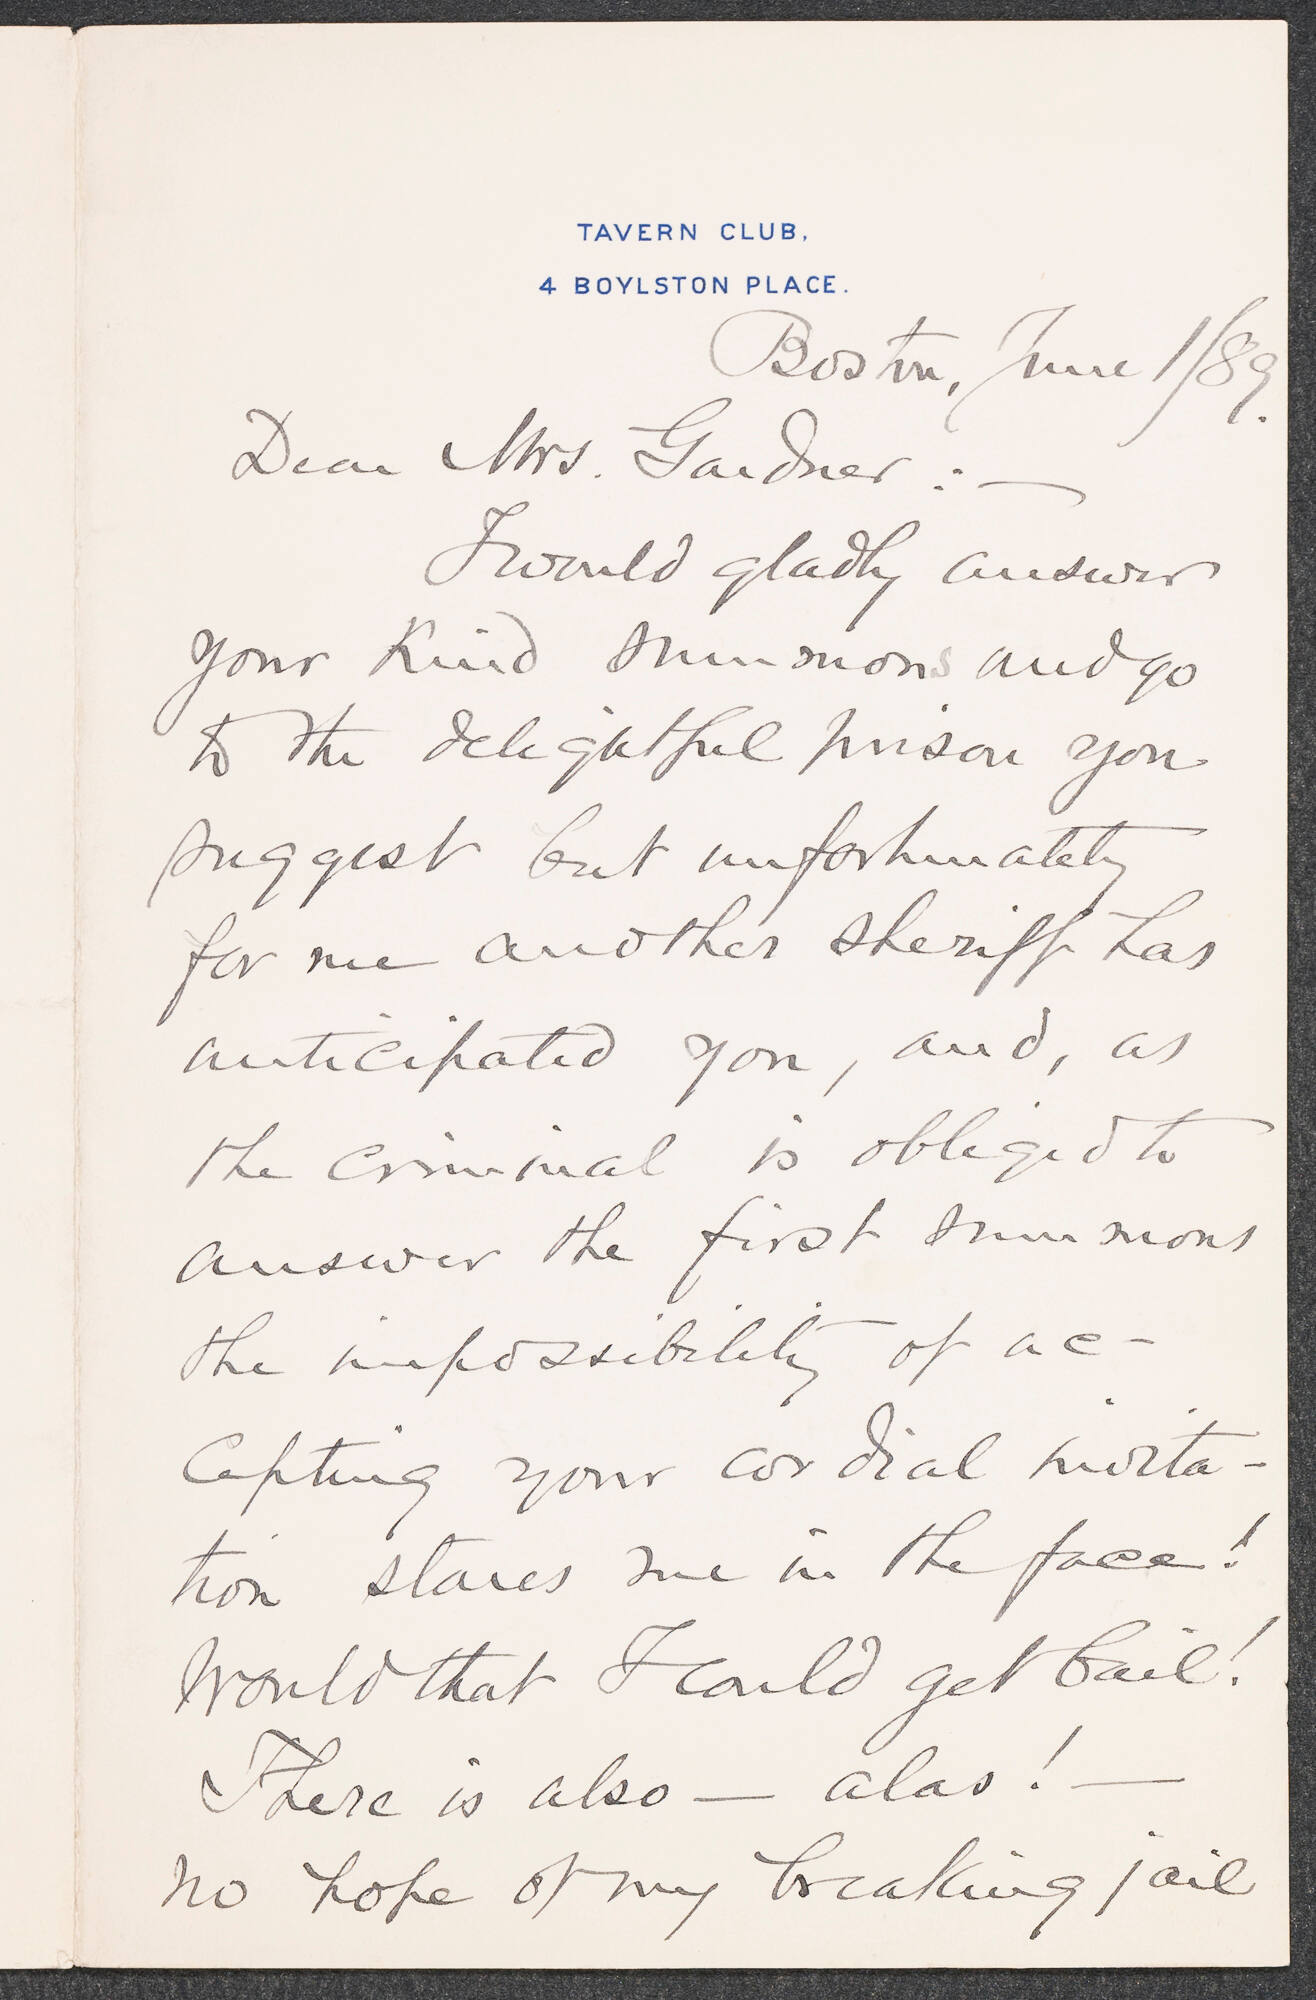 TAVERN CLUB,
4 BOYLSTON PLACE.
Boston, June 1/89.
Dear Mrs. Gardner : —
I would gladly answer
your kind summons and go
to the delightful prison you
suggest but unfortunately
for me another sheriff has
anticipated you, and, as
the criminal is obliged to
answer the first summons
the impossibility of ac-
cepting your cordial invita-
tion stares me in the face!
Would that I could get bail!
There is also — alas! —
no hope of my breaking jail